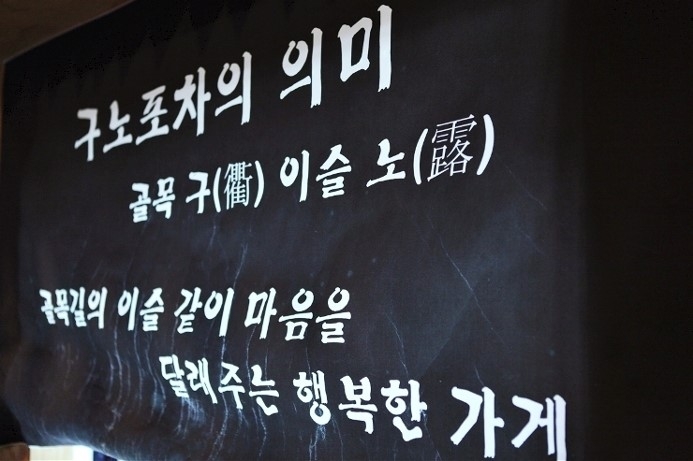 구노포차의 의미
골목 구(衢) 이슬 노(露)
골목길의 이슬 같이 마음을
달래주는 행복한 가게